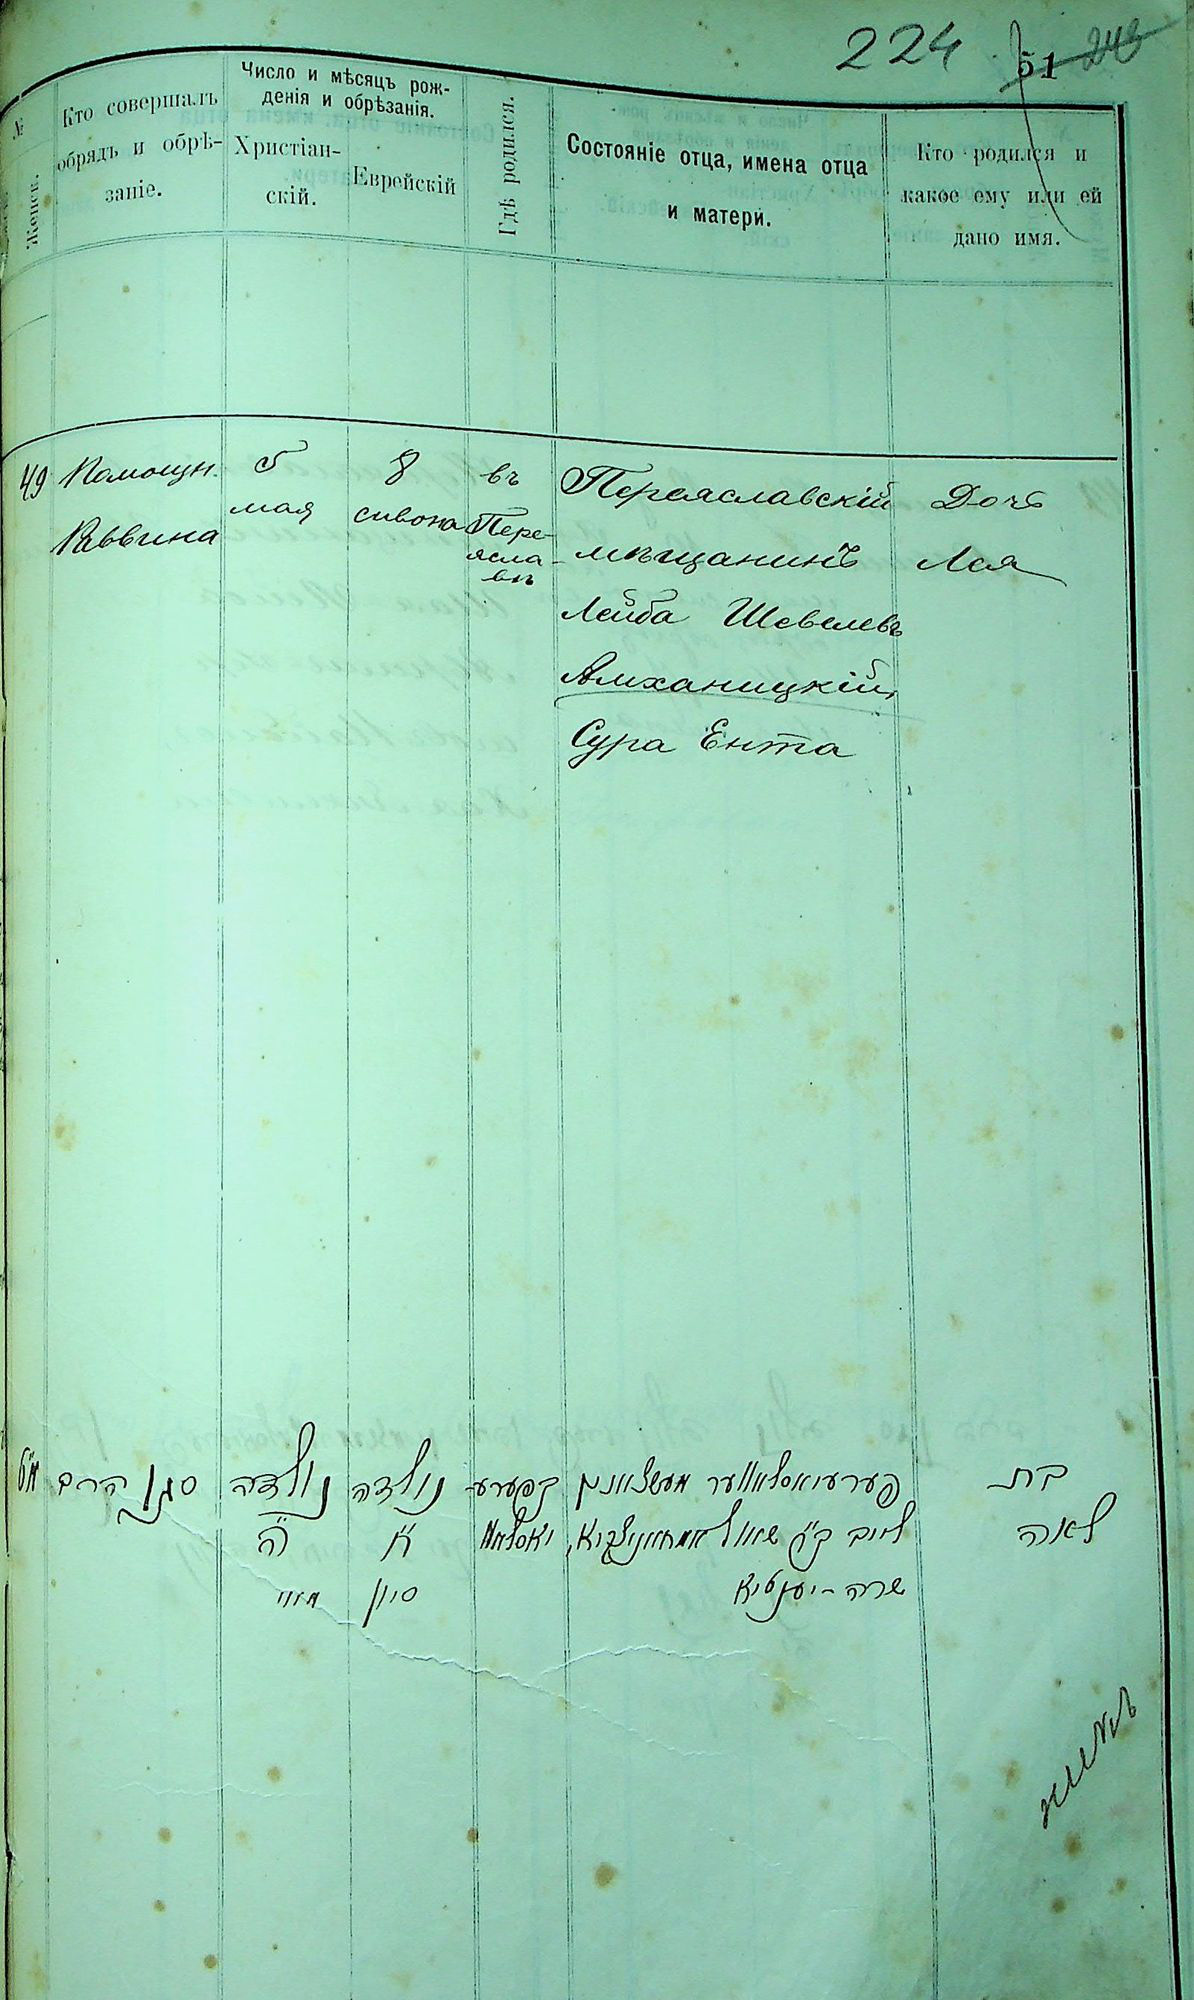 224 51 243
№
Женск.
Кто совершалъ
обрядъ и обрѣ-
заніе.
Число и мѣсяцъ рож-
денія и обрѣзанія.
Христіан-
скій.
Еврейскій
Гдѣ родился.
Состояніе отца, имена отца
и матери.
Кто родился и
какое ему или ей
дано имя.
49
Помощн.
Раввина
5
мая
8
сивона
въ
Пере-
ясла-
вѣ
Переяславскій
мѣщанинъ
Лейба Шевелевъ
Амханицкій,
Сура Ента
Дочь
Лея
מ"ט
סגן הרב
נולדה
ה'
מאי
נולדה
ח'
סיון
בפערע
יאסלאוו
פערעיאסלאווער מעשצאנין
לייב שאול אמחאניצקיא,
שרה-יענטיא
בת
לאה